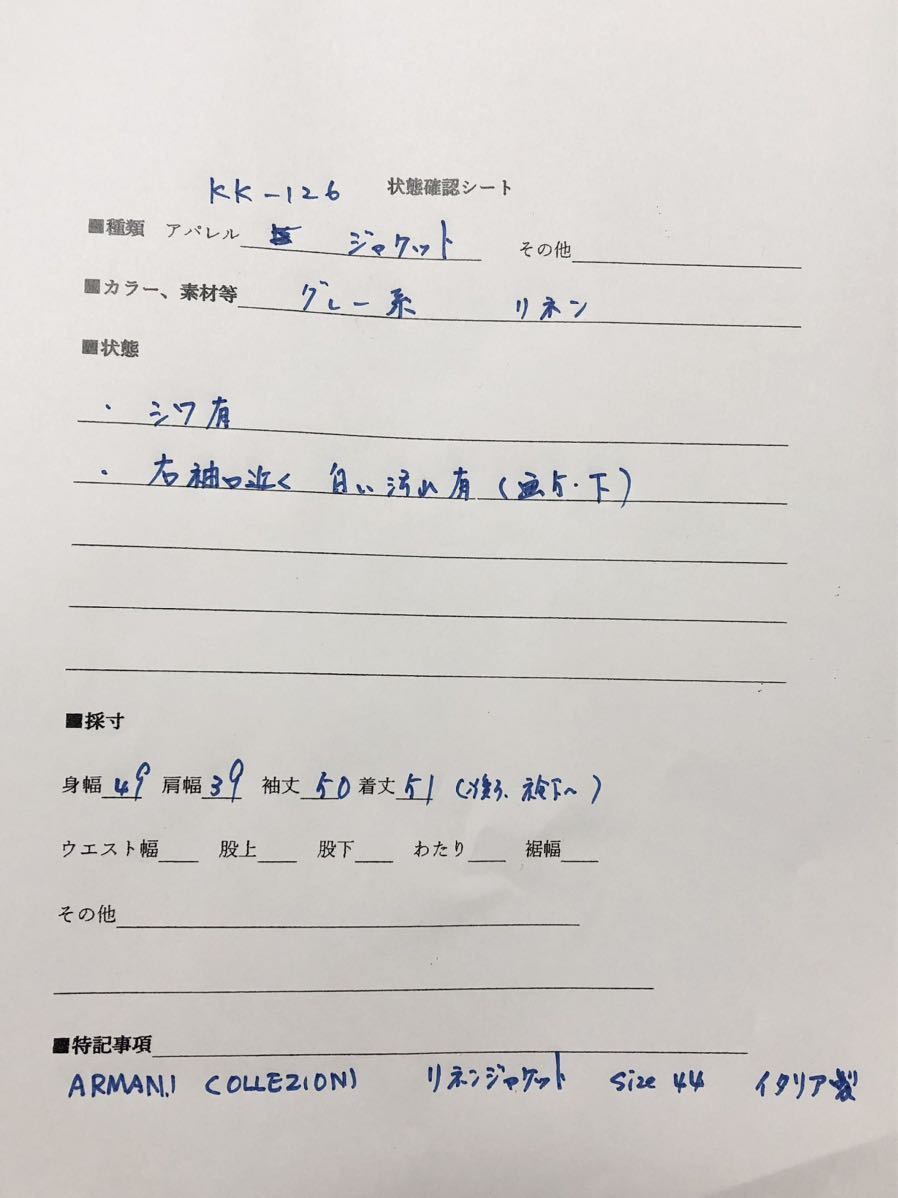 KK-126 状態確認シート
■種類 アパレル ジャケット その他
■カラー、素材等 グレー系 リネン
■状態
・シワ有
・右袖口近く 白い汚れ有（画5・下）
■採寸
身幅49 肩幅39 袖丈50 着丈51（後ろ、衿下〜）
ウエスト幅 股上 股下 わたり 裾幅
その他
■特記事項
ARMANI COLLEZIONI リネンジャケット Size 44 イタリア製